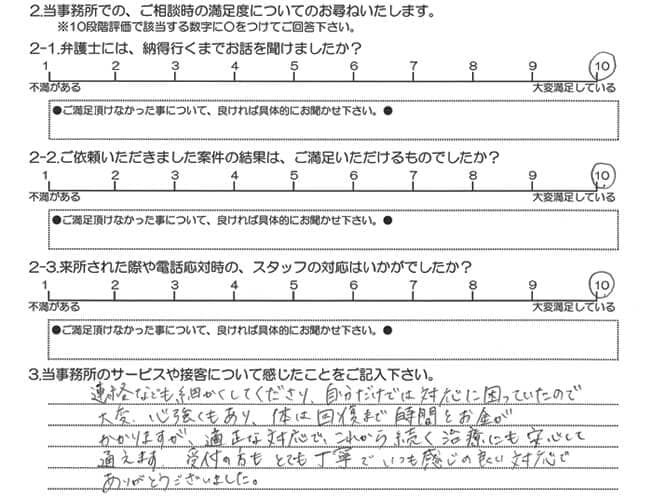 2.当事務所での、ご相談時の満足度についてのお尋ねいたします。
※10段階評価で該当する数字に○をつけてご回答下さい。
2-1.弁護士には、納得行くまでお話を聞けましたか？
1 2 3 4 5 6 7 8 9 10
不満がある 大変満足している
●ご満足頂けなかった事について、良ければ具体的にお聞かせ下さい。●
2-2.ご依頼いただきました案件の結果は、ご満足いただけるものでしたか？
1 2 3 4 5 6 7 8 9 10
不満がある 大変満足している
●ご満足頂けなかった事について、良ければ具体的にお聞かせ下さい。●
2-3.来所された際や電話応対時の、スタッフの対応はいかがでしたか？
1 2 3 4 5 6 7 8 9 10
不満がある 大変満足している
●ご満足頂けなかった事について、良ければ具体的にお聞かせ下さい。●
3.当事務所のサービスや接客について感じたことをご記入下さい。
連絡なども細かくしてくださり、自分だけでは対応に困っていたので
大変、心強くもあり、体は回復まで時間とお金が
かかりますが、適正な対応で、これから続く治療にも安心して
通えます。受付の方もとても丁寧でいつも感じの良い対応で
ありがとうございました。